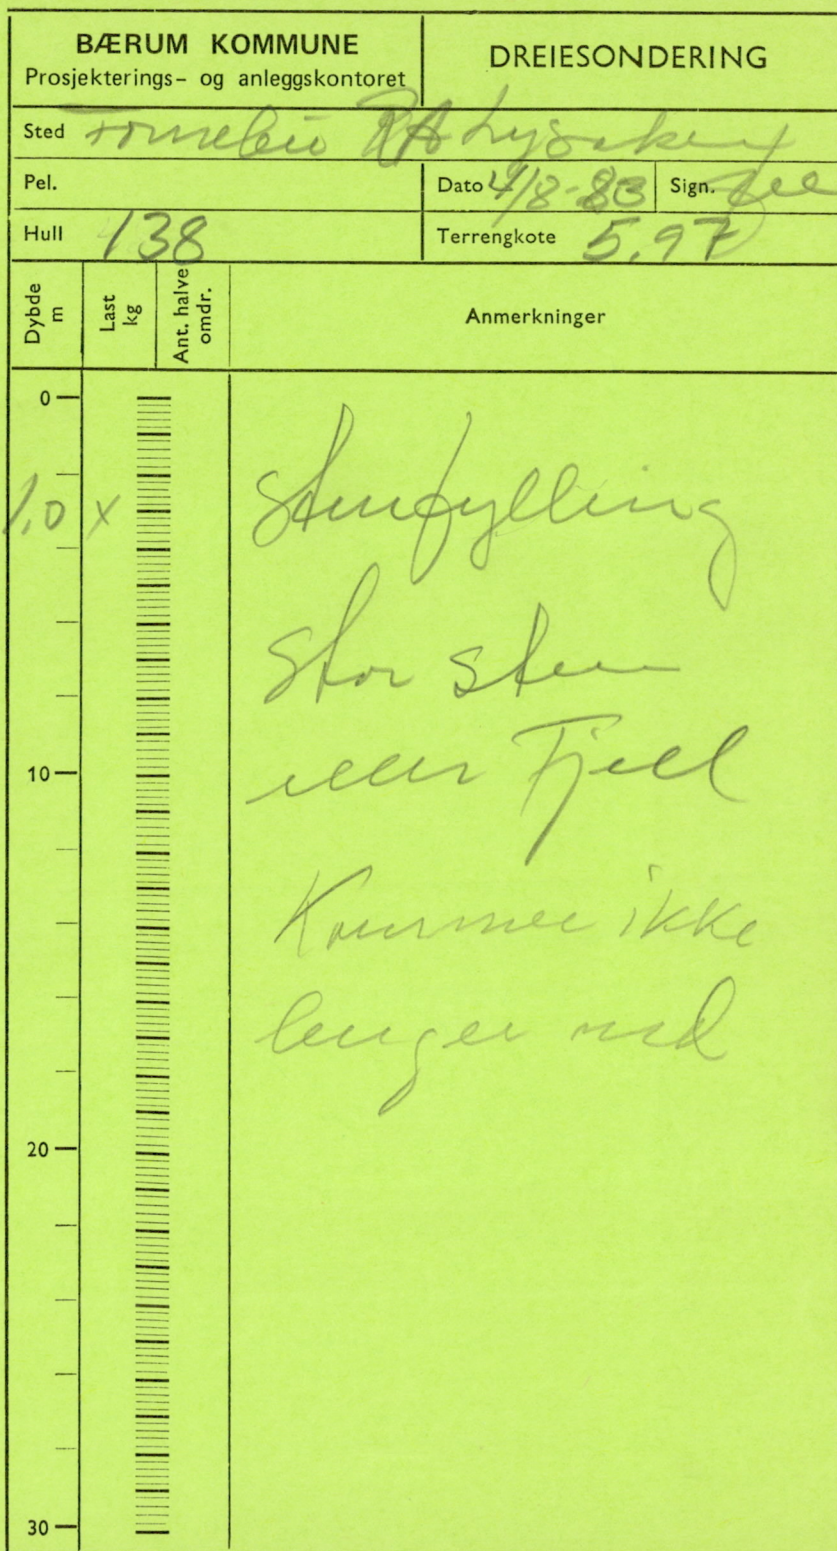 BÆRUM KOMMUNE
Prosjekterings- og anleggskontoret
DREIESONDERING
Sted Fornebu RA Lysaker
Pel.
Dato 4/8-83
Sign.
Hull 138
Terrengkote 5,97
Dybde m
Last kg
Ant. halve omdr.
Anmerkninger
0
1,0 x
Stenfylling
Stor Sten
eller Fjell
10
Kommer ikke
lenger ned
20
30